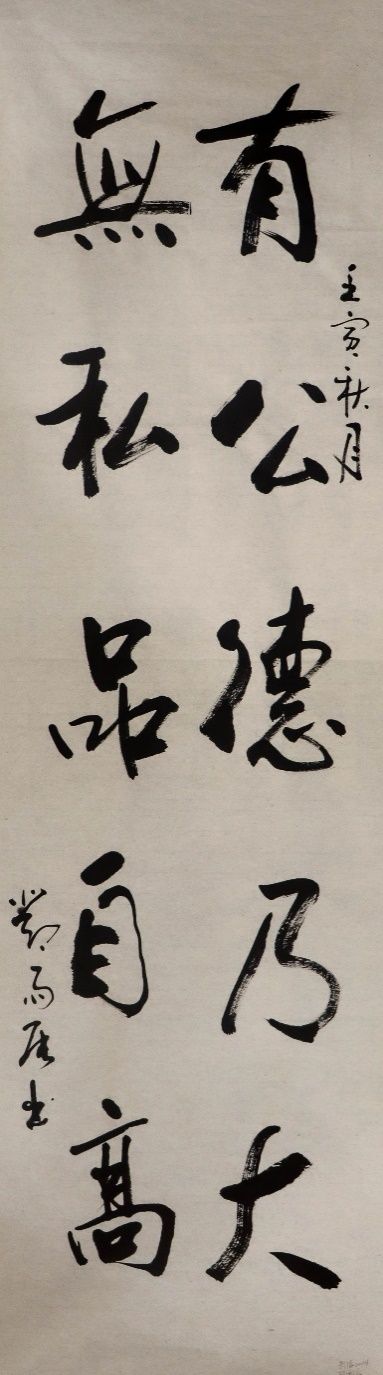 壬寅秋月
有公德乃大
無私品自高
雨石书